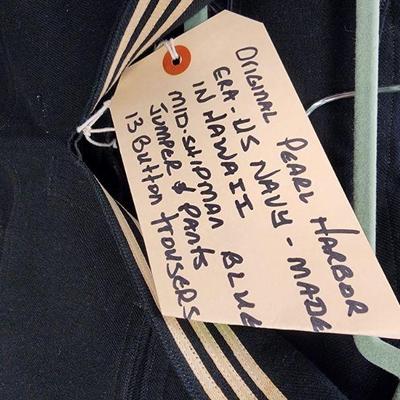 ORIGINAL PEARL HARBOR
ERA - US NAVY - MADE
IN HAWAII BLUE
MID-SHIPMAN
JUMPER & PANTS
13 Button TROUSERS